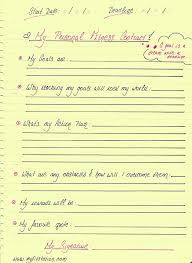 Start Date: - / - / -    Deadline: - / - / -
My Personal Fitness Contract!
A goal is a
dream with a
deadline
My Goals are:
Why reaching my goals will rock my world:
What's my Action Plan:
What are my obstacles & how will I overcome them:
My rewards will be:
My favorite quote:
My Signature